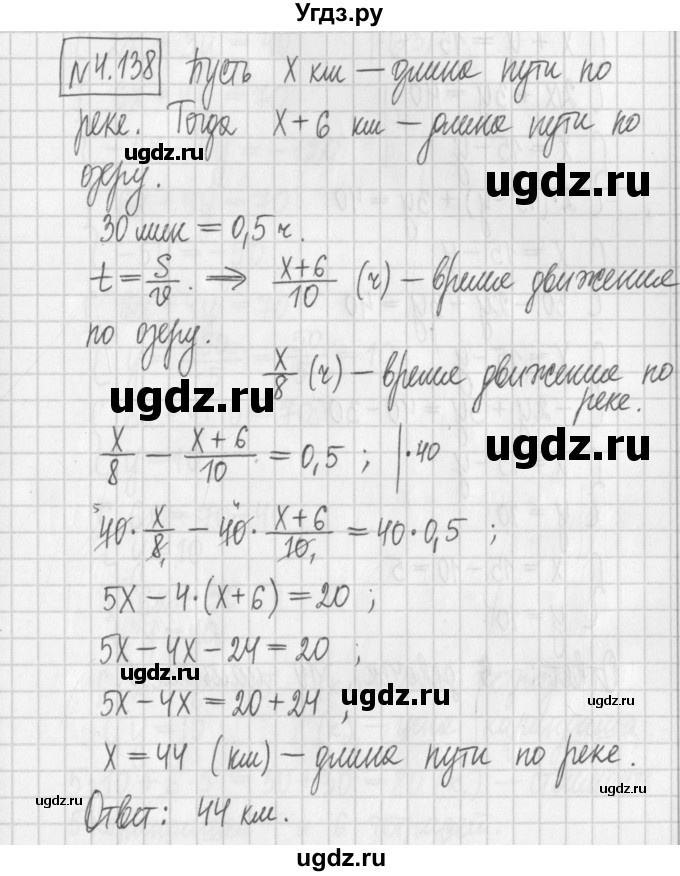 Угдз.ру
№4.138 Пусть x км – длина пути по
реке. Тогда x+6 км – длина пути по
ugdz.ru
ugdz.ru
озеру.
30 мин = 0,5 ч.
t = S/v. ⇒ (x+6)/10 (ч) – время движения
по озеру.
x/8 (ч) – время движения по
реке.
ugdz.ru
ugdz.ru
x/8 – (x+6)/10 = 0,5 ; | ·40
5 4
40· x/8 – 40· (x+6)/10 = 40·0,5 ;
1 1
5x – 4·(x+6) = 20 ;
5x – 4x – 24 = 20 ;
ugdz.ru
5x – 4x = 20+24 ;
x = 44 (км) – длина пути по реке.
ugdz.ru
ugdz.ru
Ответ: 44 км.
ugdz.ru